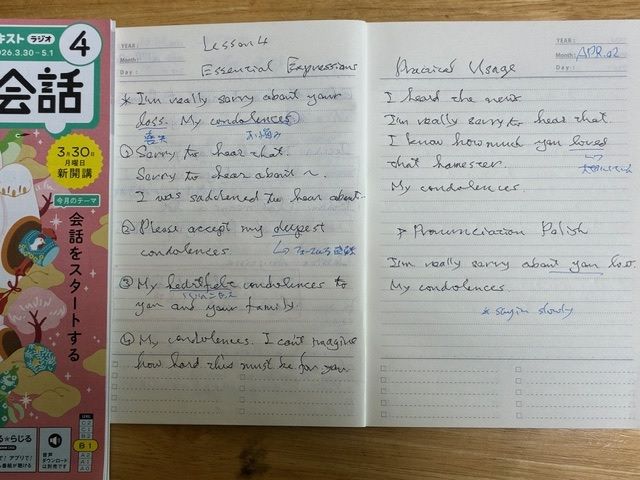 キスト ラジオ
2026.3.30－5.1
4
会話
3月30日
月曜日
新開講
今月のテーマ
会話をスタートする
LEVEL
C2
C1
B2
B1
A2
A1
A0
らじる
音声
ダウンロード
は別売です
YEAR :
Month :
Day :
Lesson 4
Essential Expressions
* I'm really sorry about your
loss. My condolences.
喪失 お悔み
① Sorry to hear that.
Sorry to hear about ~.
I was saddened to hear about...
② Please accept my deepest
condolences.
③ My heartfelt condolences to
you and your family.
④ My condolences. I can't imagine
how hard this must be for you
YEAR :
Month : APR. 02
Day :
Practical Usage
I heard the news.
I'm really sorry to hear that
I know how much you loved
that hamester.
My condolences.
Pronunciation Polish
I'm really sorry about your loss.
My condolences.
* sayin slowly